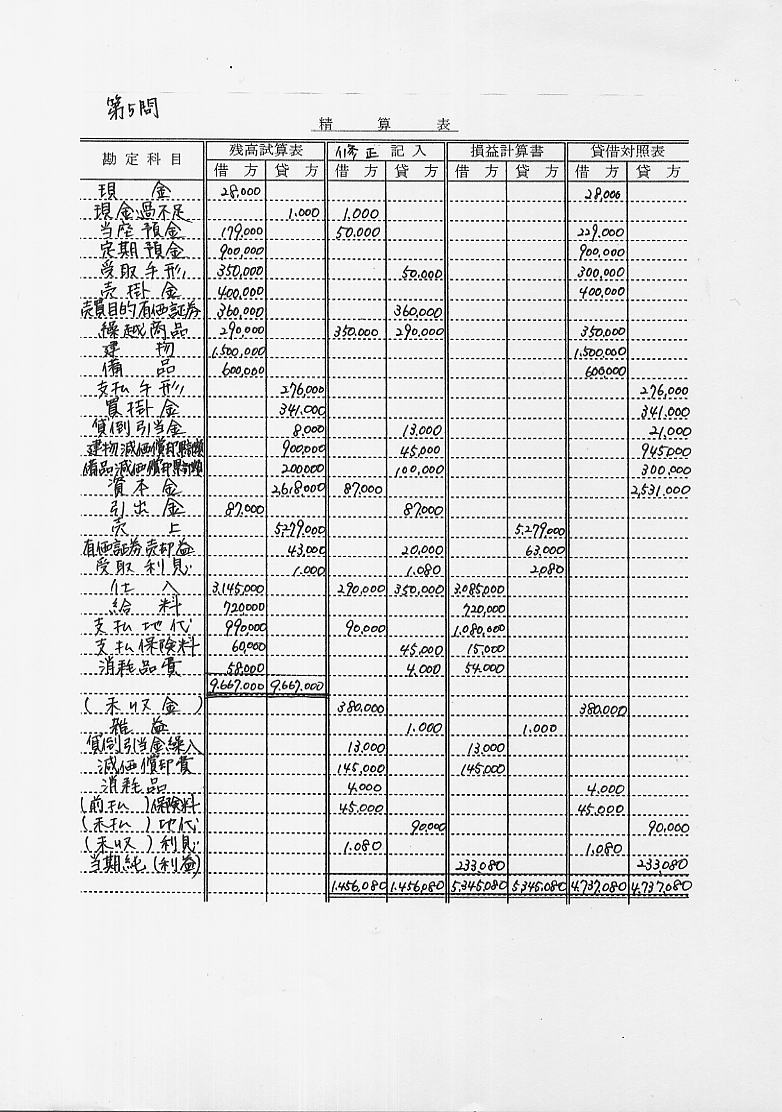 第5問
精算表
勘定科目 残高試算表 修正記入 損益計算書 貸借対照表
借方 貸方 借方 貸方 借方 貸方 借方 貸方
現金 28,000 28,000
現金過不足 1,000 1,000
当座預金 179,000 50,000 229,000
定期預金 900,000 900,000
受取手形 350,000 50,000 300,000
売掛金 400,000 400,000
売買目的有価証券 360,000 360,000
繰越商品 290,000 350,000 290,000 350,000
建物 1,500,000 1,500,000
備品 600,000 600,000
支払手形 276,000 276,000
買掛金 341,000 341,000
貸倒引当金 8,000 13,000 21,000
建物減価償却累計額 900,000 45,000 945,000
備品減価償却累計額 200,000 100,000 300,000
資本金 2,618,000 87,000 2,531,000
引出金 87,000 87,000
売上 5,279,000 5,279,000
有価証券売却益 43,000 20,000 63,000
受取利息 1,000 1,080 2,080
仕入 3,145,000 290,000 350,000 3,085,000
給料 720,000 720,000
支払地代 990,000 90,000 1,080,000
支払保険料 60,000 45,000 15,000
消耗品費 58,000 4,000 54,000
9,667,000 9,667,000
(未収金) 380,000 380,000
雑益 1,000 1,000
貸倒引当金繰入 13,000 13,000
減価償却費 145,000 145,000
消耗品 4,000 4,000
(前払)保険料 45,000 45,000
(未払)地代 90,000 90,000
(未収)利息 1,080 1,080
当期純(利益) 233,080 233,080
1,456,080 1,456,080 5,345,080 5,345,080 4,737,080 4,737,080